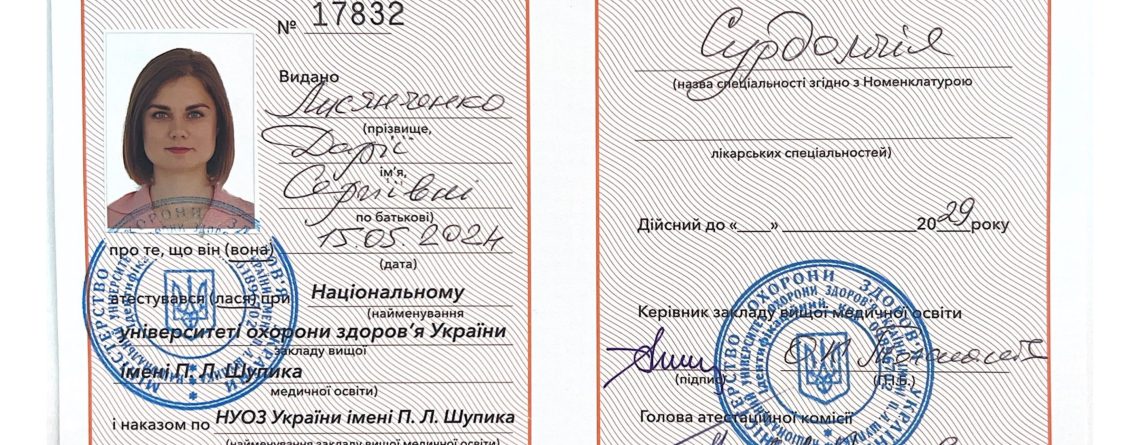 № 17832
Видано
Лук'янченко
(прізвище,
Дарії
ім'я,
Сергіївні
по батькові)
15.05.2024
(дата)
про те, що він (вона)
атестувався (лася) при Національному
(найменування
університеті охорони здоров'я України
закладу вищої
імені П. Л. Шупика
медичної освіти)
і наказом по НУОЗ України імені П. Л. Шупика
(найменування закладу вищої медичної освіти)
Сурдологія
(назва спеціальності згідно з Номенклатурою
лікарських спеціальностей)
Дійсний до «___» 2029 року
Керівник закладу вищої медичної освіти
(підпис) (П.І.Б.)
Голова атестаційної комісії